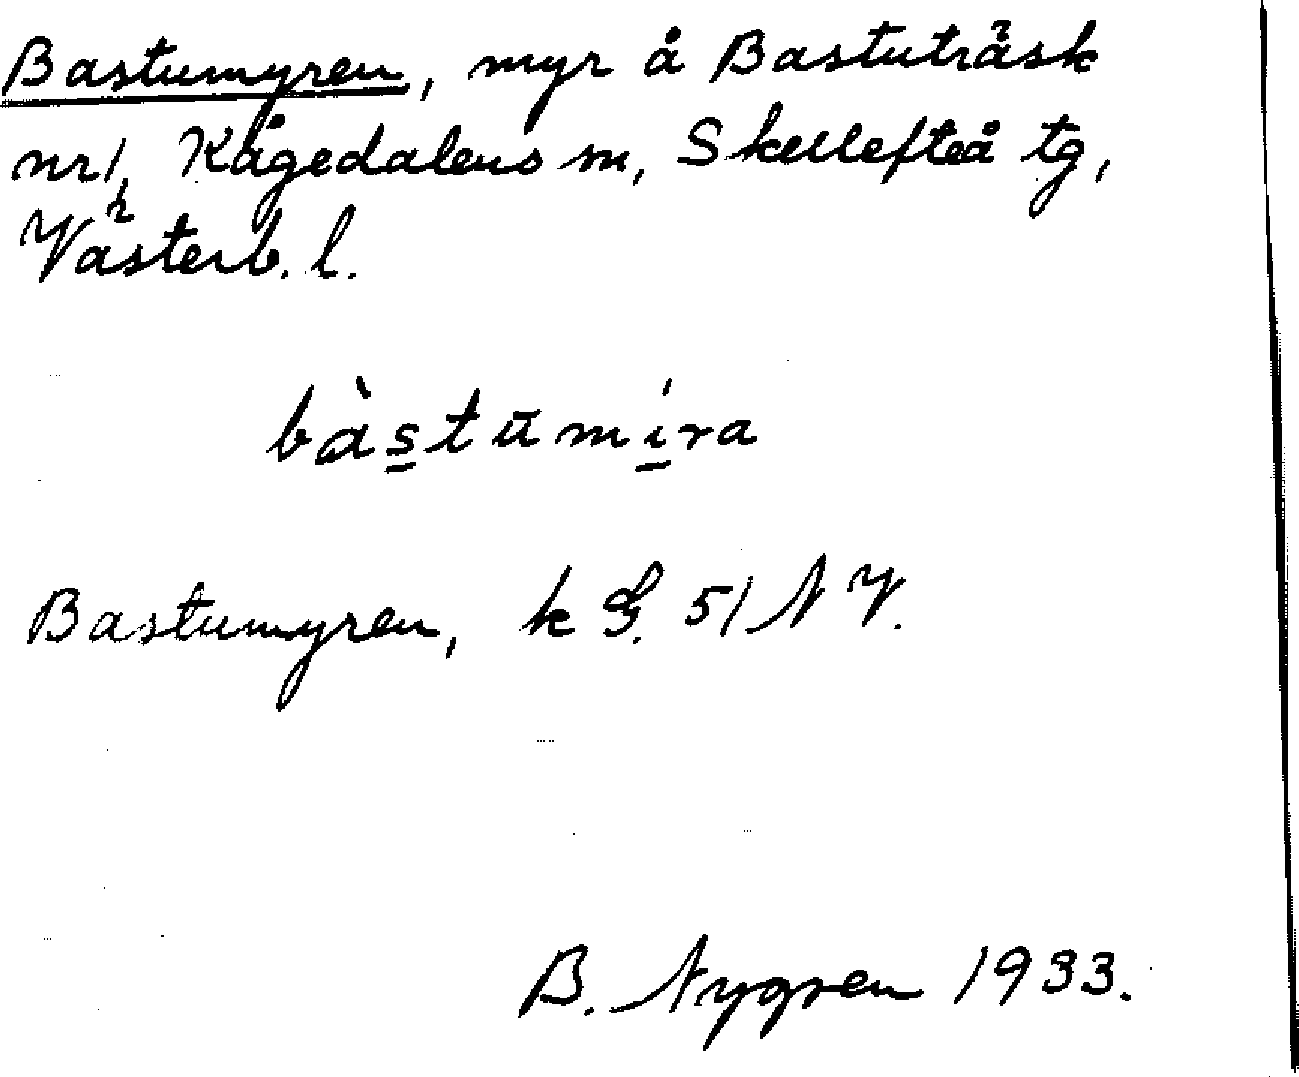 Bastumyren, myr å Bastuträsk
nr 1, Kågedalens m, Skellefteå tg,
Västerb. l.
bàs̲tūmí̲ra
Bastumyren, k G. 51 N V.
B. Nygren 1933.